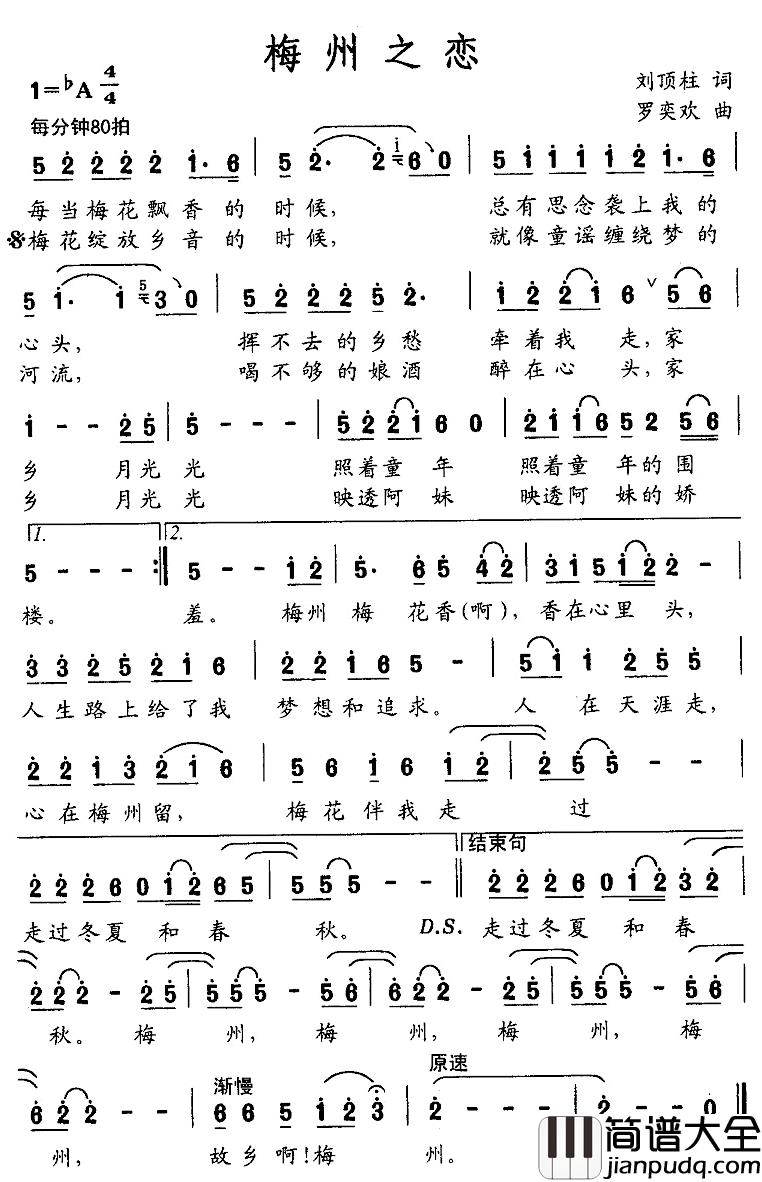 梅州之恋
1=♭A 4/4
刘顶柱 词
罗奕欢 曲
每分钟80拍
5 2 2 2 2 1· 6 | 5 2· 2 i 6 0 | 5 1 1 1 1 2 1· 6 |
每当梅花飘香的时候, 总有思念袭上我的
梅花绽放乡音的时候, 就像童谣缠绕梦的
5 1· 1 5 3 0 | 5 2 2 2 5 2· | 1 2 2 1 6 ∨ 5 6 |
心头, 挥不去的乡愁 牵着我走,家
河流, 喝不够的娘酒 醉在心头,家
1 - - 2 5 | 5 - - - | 5 2 2 1 6 0 | 2 1 1 6 5 2 5 6 |
乡 月光光 照着童年 照着童年的围
乡 月光光 映透阿妹 映透阿妹的娇
1. 2.
5 - - - :| 5 - - 1 2 | 5· 6 5 4 2 | 3 1 5 1 2 2 - |
楼。 羞。 梅州梅花香(啊),香在心里头,
3 3 2 5 2 1 6 | 2 2 1 6 5 - | 5 1 1 2 5 5 |
人生路上给了我 梦想和追求。 人在天涯走,
2 2 1 3 2 1 6 | 5 6 1 6 1 2 | 2 5 5 - - |
心在梅州留, 梅花伴我走过
结束句
2 2 2 6 0 1 2 6 5 | 5 5 5 - - || 2 2 2 6 0 1 2 3 2 |
走过冬夏和春秋。 D.S. 走过冬夏和春
2 2 2 - 2 5 | 5 5 5 - 5 6 | 6 2 2 - 2 5 | 5 5 5 - 5 6 |
秋。梅州,梅州,梅州,梅
渐慢 原速
6 2 2 - - | 6 6 5 1 2 3 | 2 - - - | 2 - - 0 ‖
州, 故乡啊!梅州。
简谱大全
jianpudq.com